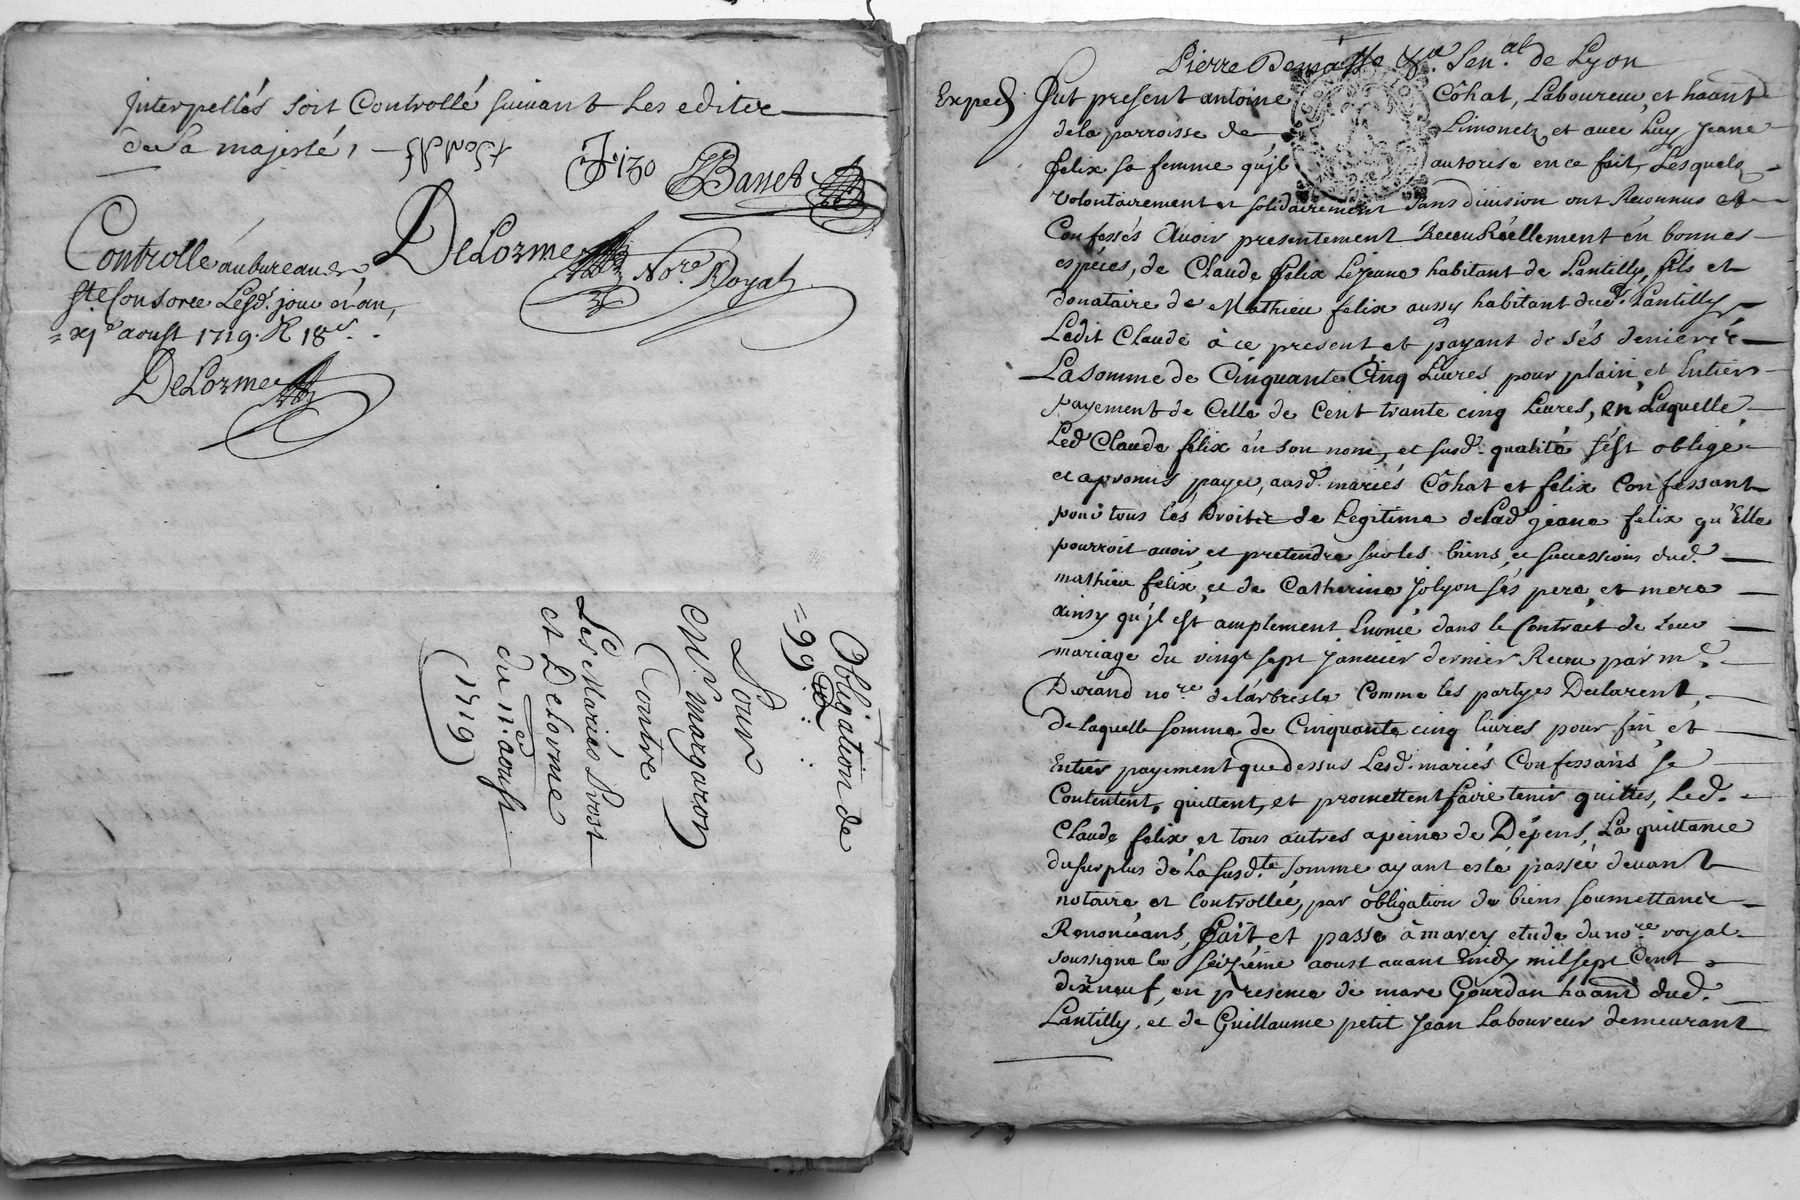 Interpellés soit Controllé suivant les editz
de Sa majesté,
Banet
DeLorme
No.re Royal
Controllé au bureau de
Ste Consorce Lesd. jour et an,
=xje aoust 1719. R 18s.
DeLorme
Obligation de
=99
Pour
Mr. margaron
Contre
Les Mariés Prost
et Delorme
du 11e. aoust
(1719)
Pierre Sen.al de Lyon
Exped
Fut present antoine Côhat, Laboureur, et haant
de la parroisse de Limonetz et avec Luy Jeane
felix sa femme qu'jl autorise en ce fait, Lesquels
volontairement et solidairement sans division ont Reconnus et
Confessés Avoir presentement Receu Réellement en bonnes
espéces, de Claude felix Lejeune habitant de Lantilly, fils et
donataire de Mathieu felix aussy habitant dud. Lantilly
Ledit Claude à ce present et payant de sés deniers
La somme de Cinquante Cinq Livres pour plain, et Entier
payement de Celle de Cent trante cinq Livres, en Laquelle
Led Claude felix en son nom, et susd. qualité s'ést obligé
et a promis payer, ausd. mariés Côhat et felix Confessant
pour tous les Droits de Legitime de Lad jeane felix qu'Elle
pourroit avoir, et pretendre sur les biens, et successions dud.
mathieu felix, et de Catherine Jolyon sés pere, et mere
ainsy qu'jl ést amplement Enoncé dans le Contract de Leur
mariage du vingt sept Janvier dernier Receu par me.
Durand no.re de Larbresle Comme les partyes Declarent,
de laquelle somme de Cinquante cinq livres pour fin, et
Entier payement que dessus Lesd. mariés Confessans se
Contentent, quittent, et promettent faire tenir quittes, Led.
Claude felix, et tous autres a peine de Dépens, La quittance
du surplus de La susd.te Somme ayant esté passée devant
notaire, et Controllée, par obligation de biens soumettans
Renonceans, Fait, et passé à marcy etude du no.re royal
soussigné le seizième aoust avant midy mil sept Cent
dix neuf, en presence de marc Gourdan haant dud.
Lantilly, et de Guillaume petit Jean Laboureur demeurant